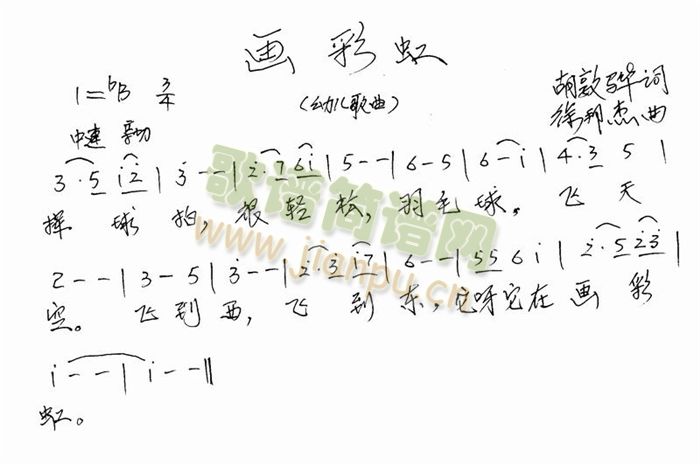 画彩虹
(幼儿歌曲)
1=♭B 3/4
胡敦骅词
徐邦杰曲
中速
3·5 i̇2̇ | 3̇ - - | 2̇·7 6i̇ | 5 - - | 6 - 5 | 6 - i̇ | 4·3 5 |
挥 球 拍，很 轻 松，羽 毛 球， 飞 天
2 - - | 3 - 5 | 3̇ - - | 2̇·3̇ i̇7 | 6 - - | 55 6 i̇ | 2̇·5 2̇3̇ |
空。 飞 到 西， 飞 到 东，它呀它在 画 彩
i̇ - - | i̇ - - ‖
虹。
歌谱简谱网
www.jianpu.cn